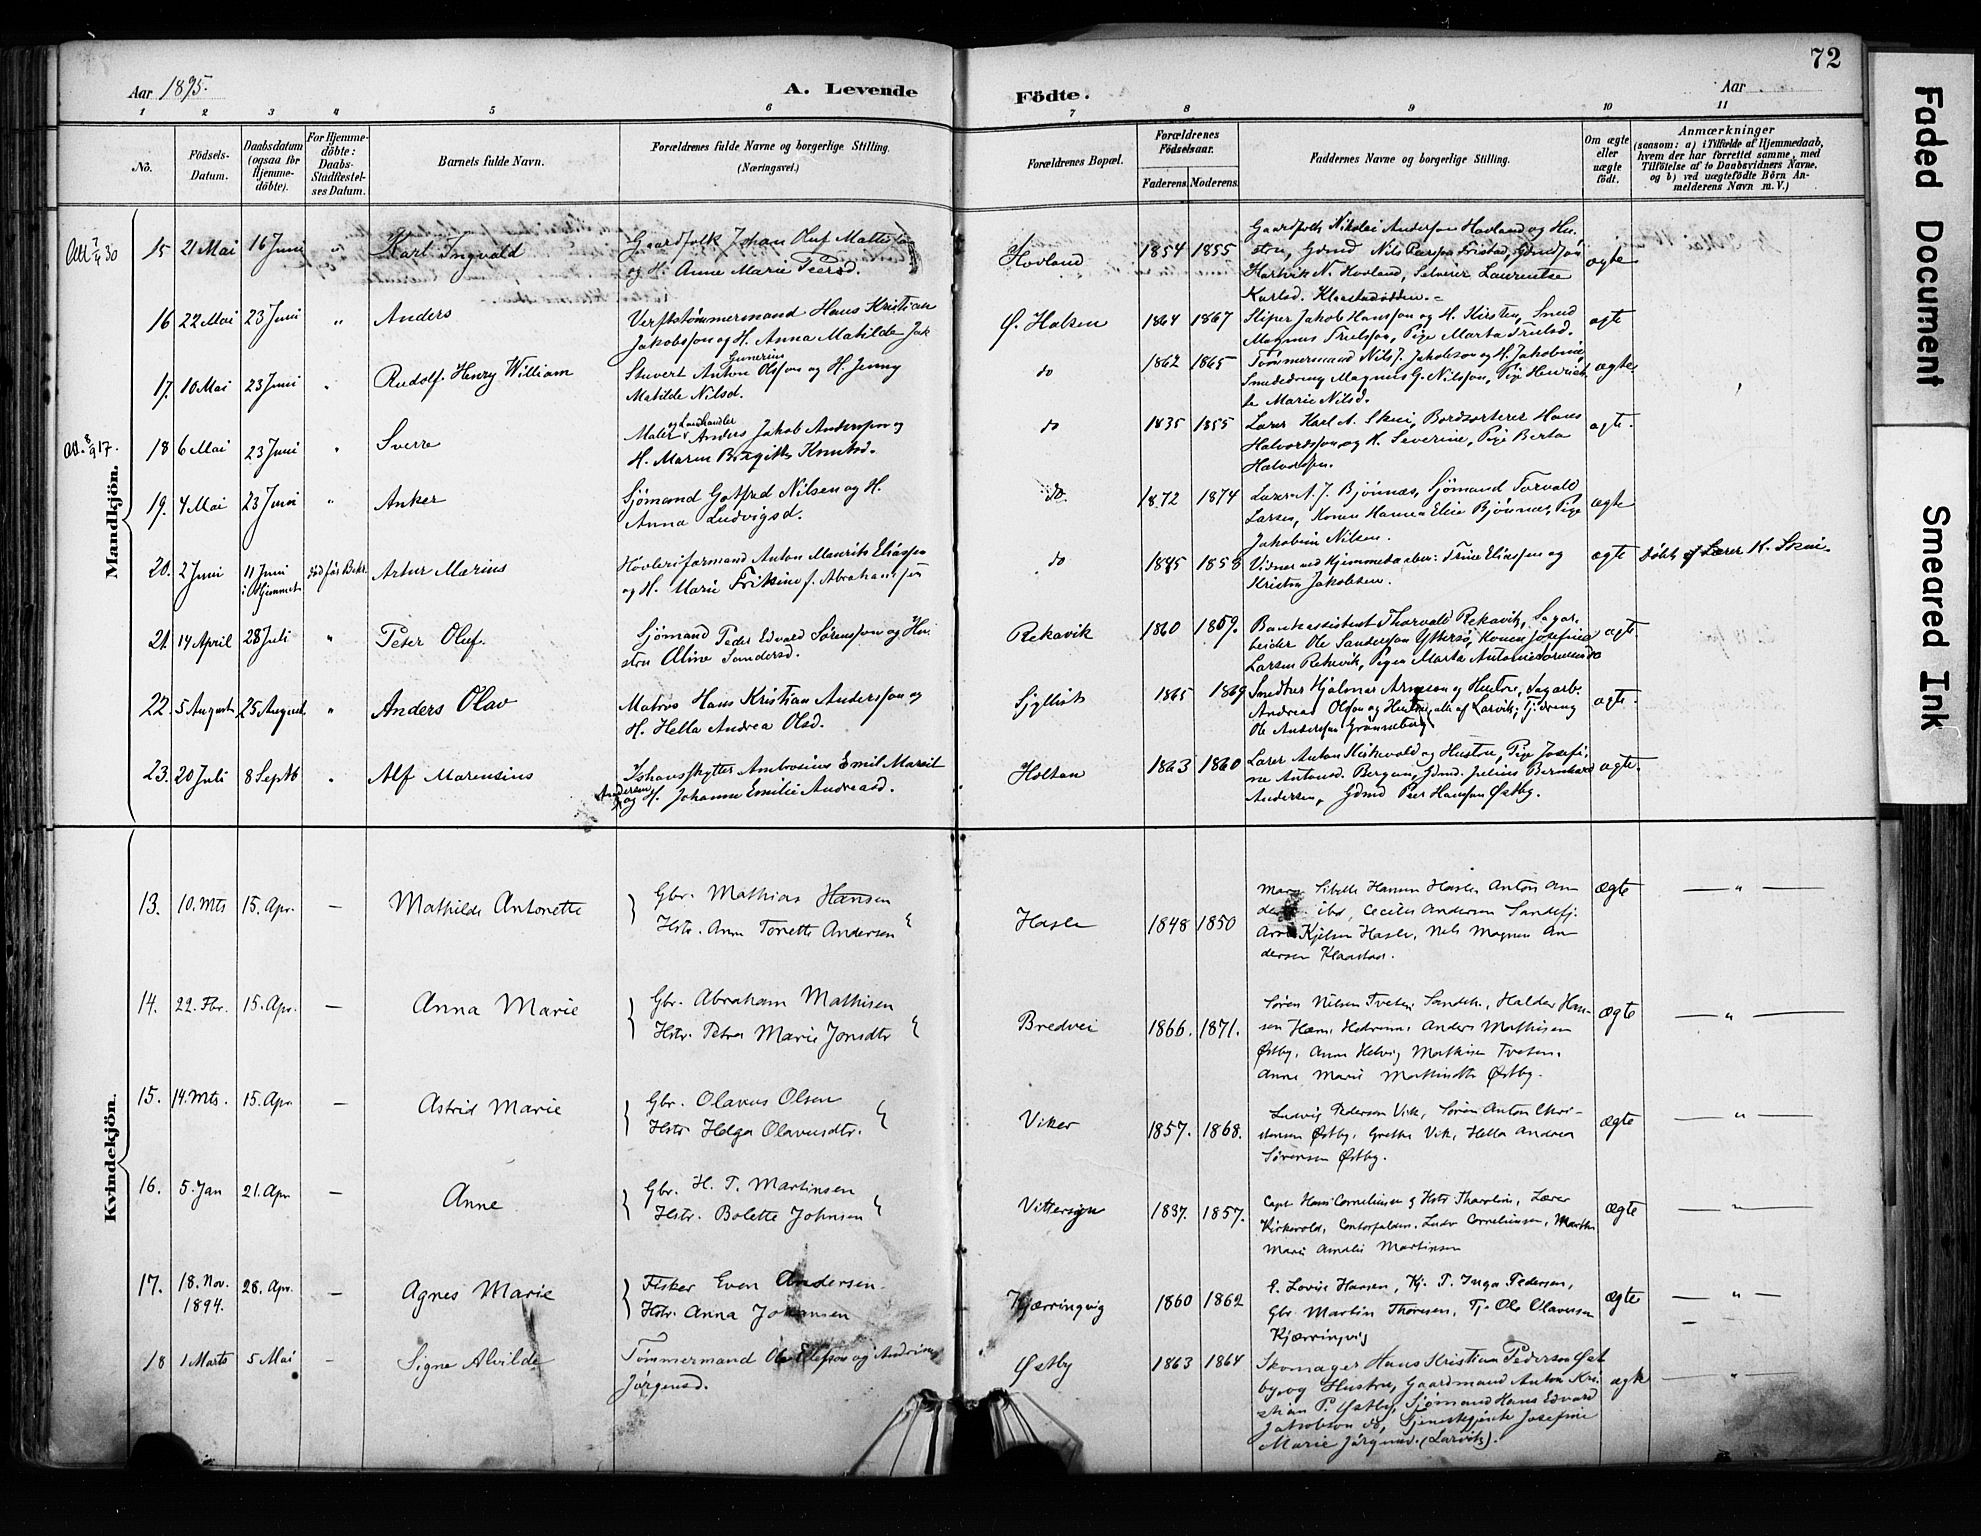 72
Aar 1895.
A. Levende
Födte.
Aar
1 2 3 4 5 6 7 8 9 10 11
No.
Födsels-Datum.
Daabsdatum (ogsaa for Hjemme-döbte).
For Hjemme-döbte: Daabs-Stadfæstel-ses Datum.
Barnets fulde Navn.
Forældrenes fulde Navne og borgerlige Stilling. (Næringsvei.)
Forældrenes Bopæl.
Forældrenes Födselsaar.
Faderens. Moderens.
Faddernes Navne og borgerlige Stilling.
Om ægte eller uægte födt.
Anmærkninger
(saasom: a) i Tilfælde af Hjemmedaab, hvem der har forrettet samme, med Tilföielse af to Daabsvidners Navne, og b) ved uægtefödte Börn Anmelderens Navn m. V.)
Mandkjön.
15 21 Mai 16 Juni " Karl Ingvald
Gaardfolk Johan Oluf
og H. Anne Marie Peersd.
Hovland 1854 1855
Gaardfolk Nikolai Anderssen Hovland og Hu-
Hartvik N. Hovland,
ægte
16 22 Mai 23 Juni " Anders
Verftstømmermand Hans Kristian
Jakobsson og H. Anna Matilde
Ø. Halsen 1864 1867
Skiper Jakob Hansson og H. Kirsten, Smed
Magnus Trulsson, Pige Marta Trulsd.
ægte
17. 10 Mai 23 Juni " Rudolf Henry William
Stuvert Anton Gunerius Olsson og H. Jenny
Matilde Nilsd.
do 1862 1865
Tømmermand Nils J. Jakobson og H. Jakobine,
Smededreng Magnus G. Nilsson, Pige Henriet-
te Marie Nilsd.
ægte
18 6 Mai 23 Juni " Sverre
Maler og Landhandler Anders Jakob Andersson og
H. Maren Birgitte Knutsd.
do 1835 1855
Lærer Karl A. Skui, Bordsorterer Hans
Halvordsson og H. Severine, Pige Berta
Halvorsen.
ægte
19. 4 Mai 23 Juni " Anker
Sjömand Gotfred Nilsen og H.
Anna Ludvigsd.
do 1872 1874
Lærer A. J. Bjönnes, Sjömand Torvald
Larsen, Konen Hanna Elise Bjönnes, Pige
Jakobine Nilsen.
ægte
20. 2 Juni 11 Juni i Hjemmet død før Bekr. Artur Marius
Høvleriformand Anton Maurits Eliassen
og H. Marie f. Abrahamsen
do 1845 1858
Vidner ved Hjemmedaaben: Trine Eliassen og
Kristen Jakobsen.
ægte Døbt af Lærer K. Skui.
21. 14 April 28 Juli " Peter Oluf.
Sjømand Peder Edvard Sørensson og Hu-
stru Oline Sandersd.
Rekavik 1860 1859.
Bankassistent Thorvald Rekavik, Sagar-
beider Ole Sandersson Yttersø, Konen Josefine
Larsen Rekevik, Pigen Marta Antonie
ægte
22. 5 August 25 August " Anders Olav
Matros Hans Kristian Andersson og
H. Hella Andrea Olsd.
1865 1869
Smedbus Hjalmar og Hustru, Sagarb.
Andreas Olsson og Hustru (alle af Larvik),
Ole Anderssen Grønneberg
ægte
23. 20 Juli 8 Septb " Alf Marensius
Ishavsskytter Ambrosius Emil
Andersen og H. Johanne Emilie Andreasd.
Holtan 1863 1860
Lærer Anton Kirkevold og Hustru, Pige Josefi-
ne Antonsd. Bergan, Gdmd. Julius Bernhard
Andersen, Gdmd Peer Hansson Østby.
ægte
Kvindekjön.
13. 10. Mts 15. Apr. — Mathilde Antonette
Gbr. Mathias Hansen
Hstr. Anne Tonette Andersen
Hasle 1848 1850
Sibelle Hansen Hasle, Anton An-
ibd, Cecilie Andersen Sandefj.
Kjelsen Hasle, Nels Magnus An-
dersen Klaastad.
ægte — " —
14. 22. Fbr. 15. Apr. — Anna Marie
Gbr. Abraham Mathisen
Hstr. Petra Marie Jonsdtr
Bredvei 1866. 1871.
Søren Nilsen Tveten Sandeh., Haldor Han-
sen Hedrum, Anders Mathisen
Østby, Anne Helvig Mathisen Tveten,
Anne Marie Mathisdtr Østby.
ægte — " —
15. 14. Mts. 15. Apr — Astrid Marie
Gbr. Olavus Olsen
Hstr. Helga Olavusdtr.
Viker 1857. 1868.
Ludvig Pederson Vik, Søren Anton Chri-
stensen Østby, Grethe Vik, Hella Andrea
Sørensen Østby.
ægte — " —
16. 5. Jan 21. Apr — Anne
Gbr. H. T. Martinsen
Hstr. Bolette Johnsen
Vittersøn 1837. 1857.
Capt. Hans Corneliusen og Hstr Thoroline, Lærer
Kirkevold, Ludv Corneliusen, Marthe
Marie Amalie Martinsen
ægte — " —
17. 18. Nov. 1894. 28. Apr. — Agnes Marie
Fisker Even Andersen
Hstr. Anna Johannsen
Kjærringvig 1860 1862
E. Lovise Hansen, Kj. P. Inga Pedersen,
Gbr. Martin Thoresen, Tj. Ole Olavesen
Kjærringvig
ægte — " —
18 1 Marts 5 Mai — Signe Alvilde
Tømmermand Ole Elefson og Andrine
Jörgensd.
Østby 1863 1864
Skomager Hans Kristian Pederson Øst-
by og Hustru, Gaardmand Anton Kri-
stian P. Østby, Sjømand Hans Edvard
Jakobson do, Tjenestepige Josefine
Marie Jörgensd. (Larvik).
ægte — " —
Faded Document
Smeared Ink